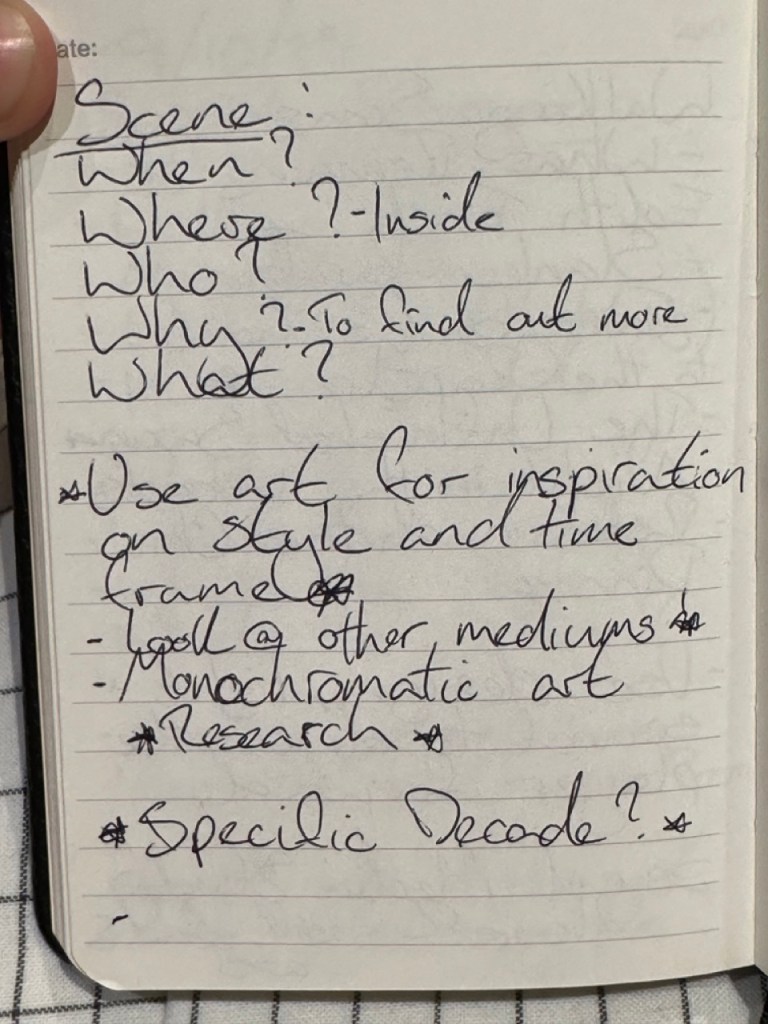 ate:
Scene :
When ?
Where ? - Inside
Who ?
Why ? - To find out more
What ?
*Use art for inspiration
on style and time
frame *
- Look @ other mediums *
- Monochromatic art
* Research *
* Specific Decade ? *
-